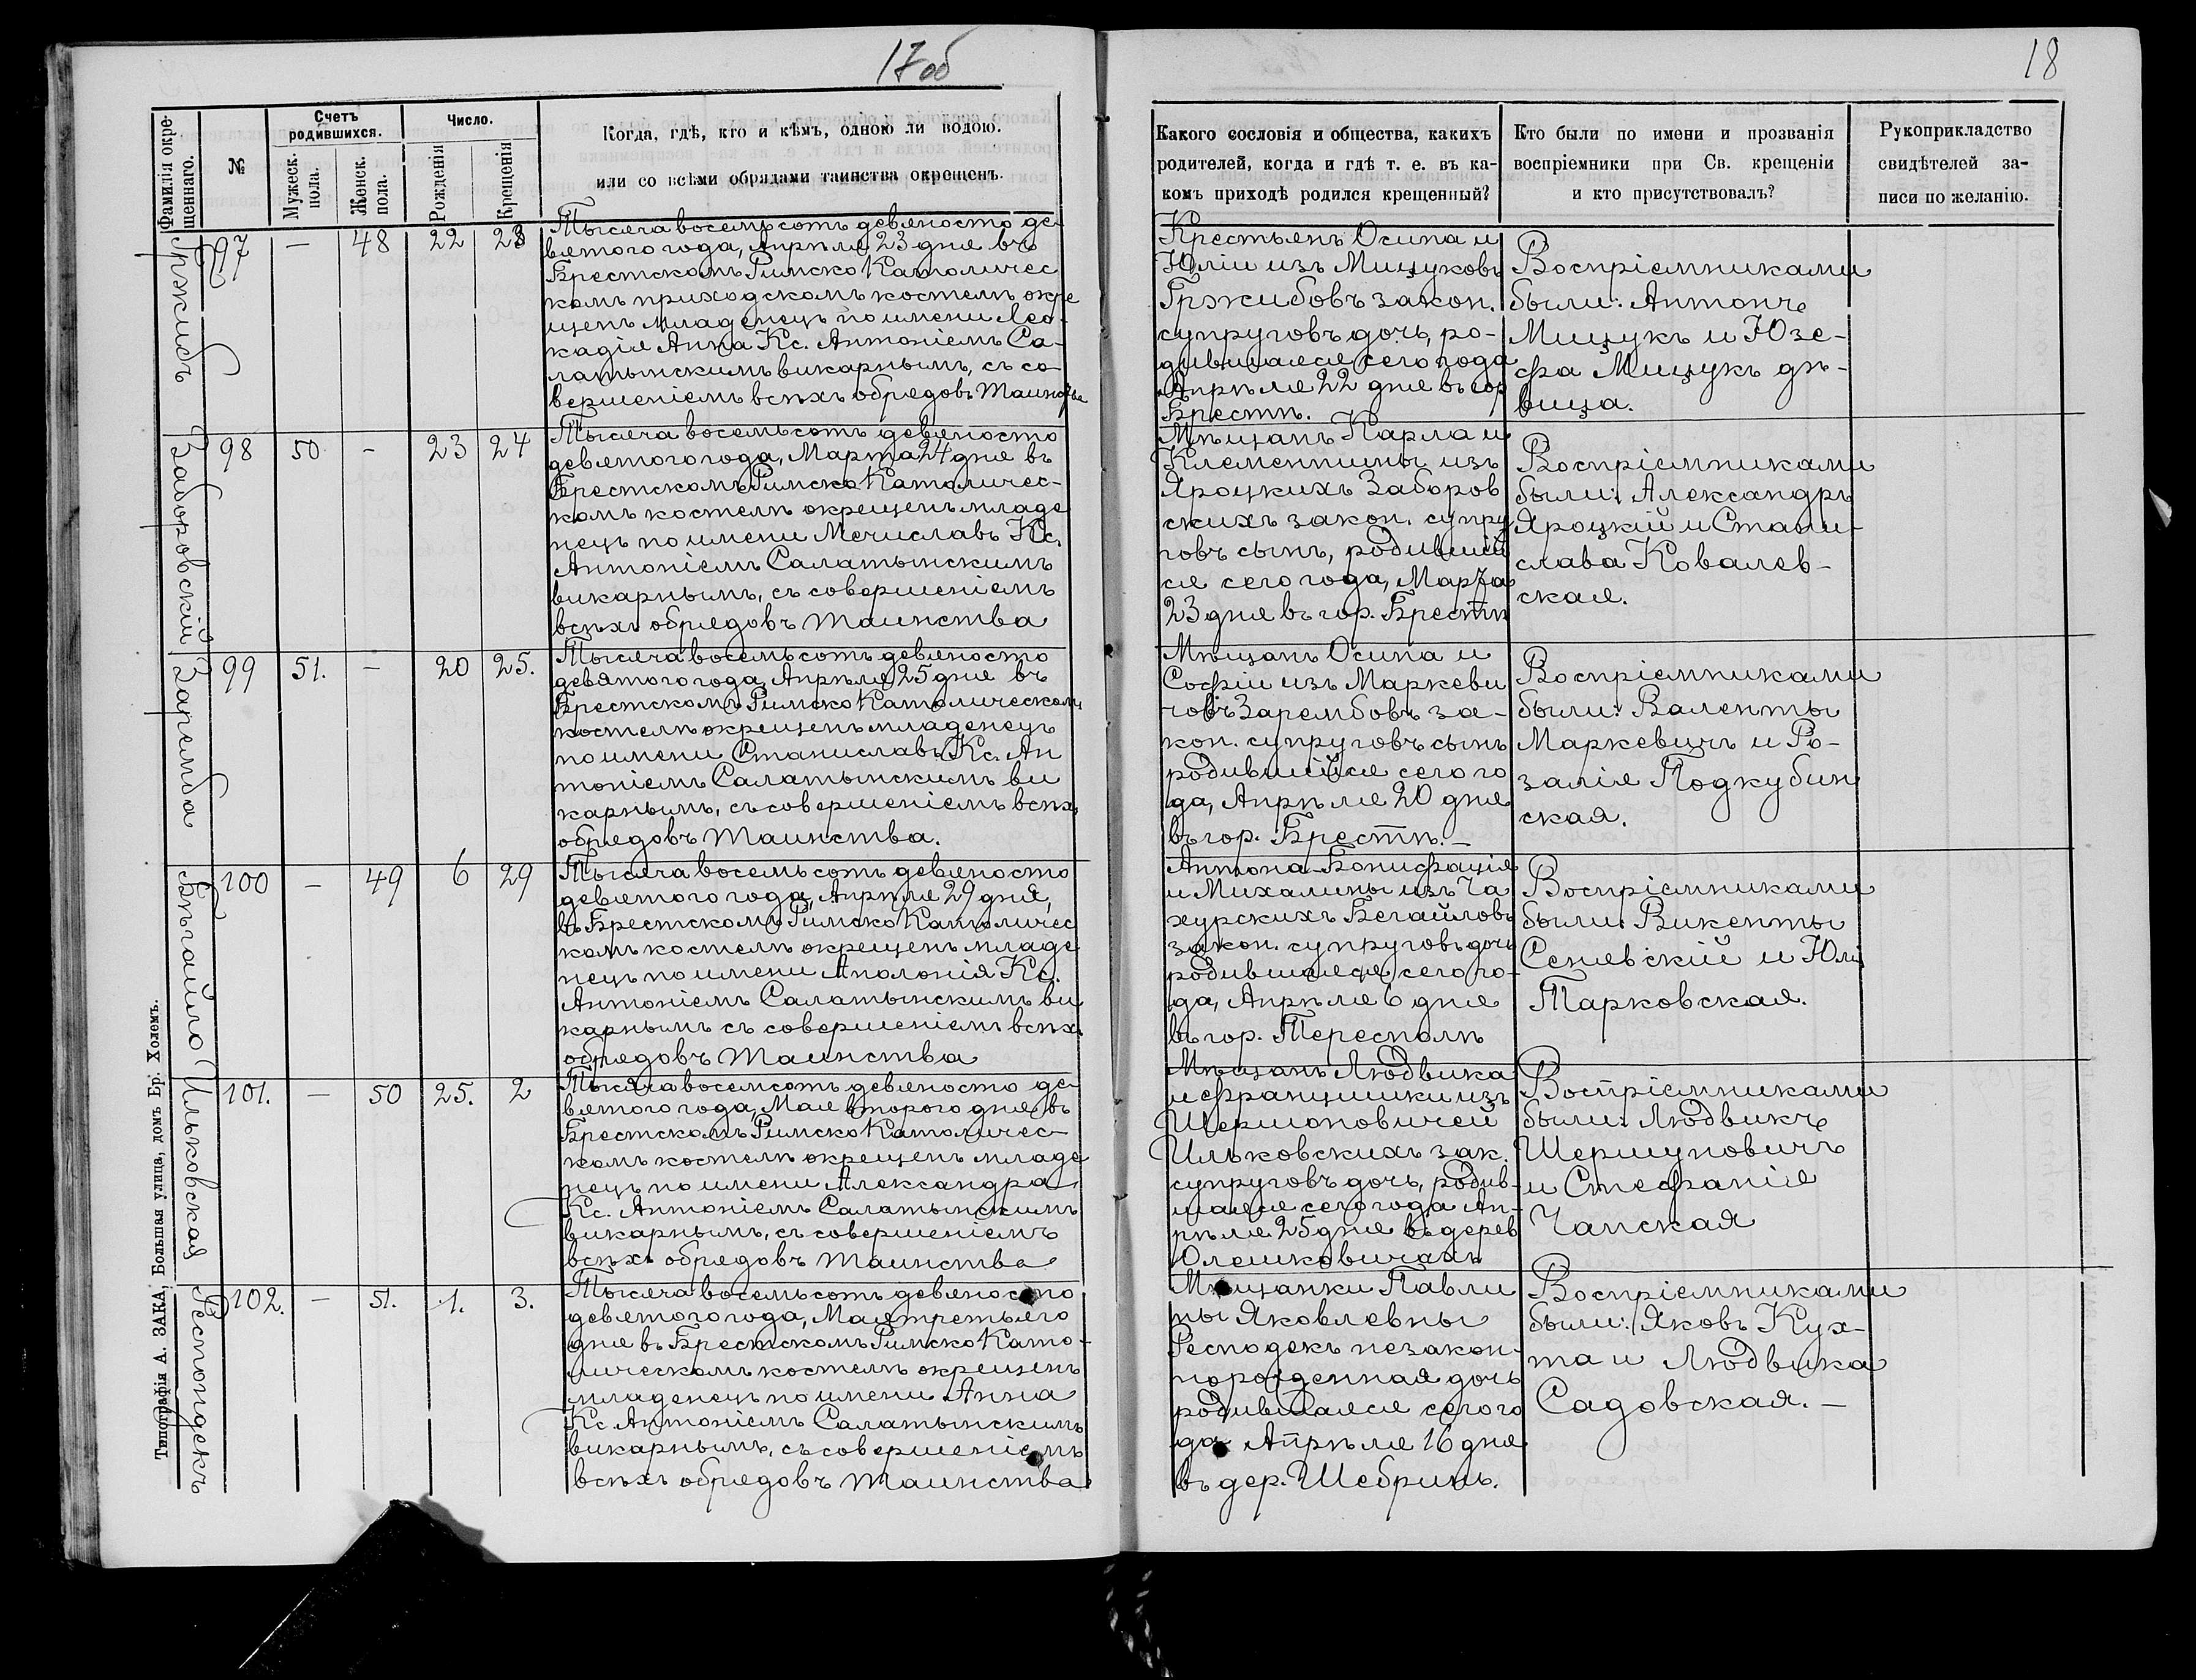 17об
18
Фамилія окре-
щеннаго.
№
Счетъ
родившихся.
Мужеск.
пола.
Женск.
пола.
Число.
Рожденія
Крещенія
Когда, гдѣ, кто и кѣмъ, одною ли водою.
или со всѣми обрядами таинства окрещенъ.
Какого сословія и общества, какихъ
родителей, когда и гдѣ т. е. въ ка-
комъ приходѣ родился крещенный?
Кто были по имени и прозванія
воспріемники при Св. крещеніи
и кто присутствовалъ?
Рукоприкладство
свидѣтелей за-
писи по желанію.
Гржибъ
97 — 48 22 23
Тысяча восемьсотъ девяносто де-
вятого года, Апрѣля 23 дня въ
Брестскомъ Римско Католичес
комъ приходскомъ костелѣ окре
щенъ младенецъ по имени Лео-
кадія Анна Кс. Антоніемъ Са-
латынскимъ викарнымъ, съ со
вершеніемъ всѣхъ обрядовъ Таинства
Крестьянъ Осипа и
Юліи изъ Мищуковъ
Гржибовъ закон.
супруговъ дочь, ро-
дившаяся сего года
Апрѣля 22 дня въ гор
Брестѣ.
Воспріемниками
были: Антонъ
Мищукъ и Юзе-
фа Мищукъ дѣ-
вица.
Заборовскій
98 50 - 23 24
Тысяча восемьсотъ девяносто
девятого года, Марта 24 дня въ
Брестскомъ Римско Католичес-
комъ костелѣ окрещенъ младе
нецъ по имени Мечиславъ Кс.
Антоніемъ Салатынскимъ
викарнымъ, съ совершеніемъ
всѣхъ обрядовъ таинства
Мѣщанъ Карла и
Клементины изъ
Яроцкихъ Заборов
скихъ закон. супру
говъ сынъ, родившій
ся сего года, Марта
23 дня въ гор. Брестѣ
Воспріемниками
были: Александръ
Яроцкій и Стани-
слава Ковалев-
ская.
Заремба
99 51. — 20 25.
Тысяча восемьсотъ девяносто
девятого года, Апрѣля 25 дня въ
Брестскомъ Римско Католическомъ
костелѣ окрещенъ младенецъ
по имени Станиславъ Кс. Ан
тоніемъ Салатынскимъ ви
карнымъ, съ совершеніемъ всѣхъ
обрядовъ Таинства.
Мѣщанъ Осипа и
Софіи изъ Маркеви
човъ Зарембовъ за-
кон. супруговъ сынъ
родившійся сего го
да, Апрѣля 20 дня
въ гор. Брестѣ.—
Воспріемниками
были: Валенты
Маркевичъ и Ро-
залія Подкубин
ская.
Бѣгайло
100 — 49 6 29
Тысяча восемьсотъ девяносто
девятого года, Апрѣля 29 дня,
въ Брестскомъ Римско Католичес
комъ костелѣ окрещенъ младе
нецъ по имени Аполонія Кс.
Антоніемъ Салатынскимъ ви
карнымъ съ совершеніемъ всѣхъ
обрядовъ Таинства
Антона-Бонифація
и Михалины изъ Ча
хурскихъ Бегайловъ
закон. супруговъ дочь
родившаяся сего го-
да, Апрѣля 6 дня
въ гор. Тересполѣ
Воспріемниками
были: Викенты
Сеневскій и Юлія
Тарковская.
Ильковская
101. — 50 25. 2
Тысяча восемсотъ девяносто де
вятого года, Мая второго дня въ
Брестскомъ Римско Католичес-
комъ костелѣ окрещенъ младе
нецъ по имени Александра
Кс. Антоніемъ Салатынскимъ
викарнымъ, съ совершеніемъ
всѣхъ обрядовъ Таинства
Мѣщанъ Людвика
и Францишки изъ
Шершоновичей
Ильковскихъ зак.
супруговъ дочь, родив-
шаяся сего года Ап-
рѣля 25 дня въ дерев
Олешковичахъ
Воспріемниками
были: Людвикъ
Шершуновичъ
и Стефанія
Чапская
Респондекъ
102. — 51. 1. 3.
Тысяча восемьсотъ девяносто
девятого года, Мая третьяго
дня въ Брестскомъ Римско Като-
лическомъ костелѣ окрещенъ
младенецъ по имени Анна
Кс. Антоніемъ Салатынскимъ
викарнымъ, съ совершеніемъ
всѣхъ обрядовъ таинства
Мѣщанки Павли
ны Яковлевны
Респодекъ незакон-
норожденная дочь
родившаяся сего го
да Апрѣля 16 дня
въ дер. Шебринъ.
Воспріемниками
были: Яковъ Кух-
та и Людвика
Садовская.—
Типографія А. ЗАКА, Большая улица, домъ Ер. Холемъ.